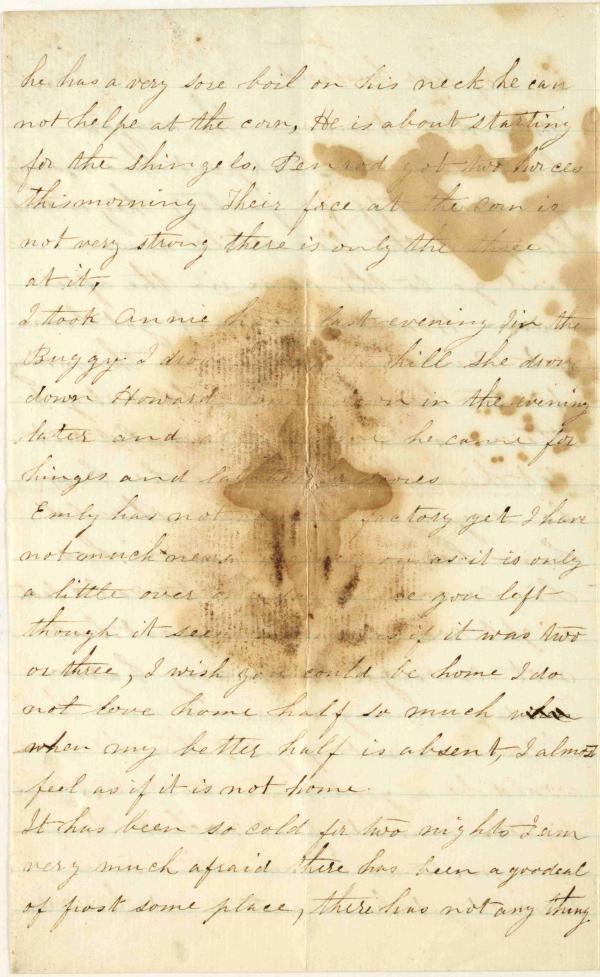 he has a very sore boil on his neck he can
not helpe at the corn, He is about starting
for the shingels. Penrod got two horces
this morning Their foce at the corn is
not very strong there is only the three
at it,
I took Annie last evening in the
Buggy I hill she drove
down Howard in the evening
later and he came for
hinges and
Emly has not factory yet I have
not much news as it is only
a little over you left
though it if it was two
or three, I wish you could be home I do
not love home half so much
when my better half is absent, I almost
feel as if it is not home
It has been so cold for two nights I am
very much afraid there has been a goodeal
of frost some place, there has not any thing